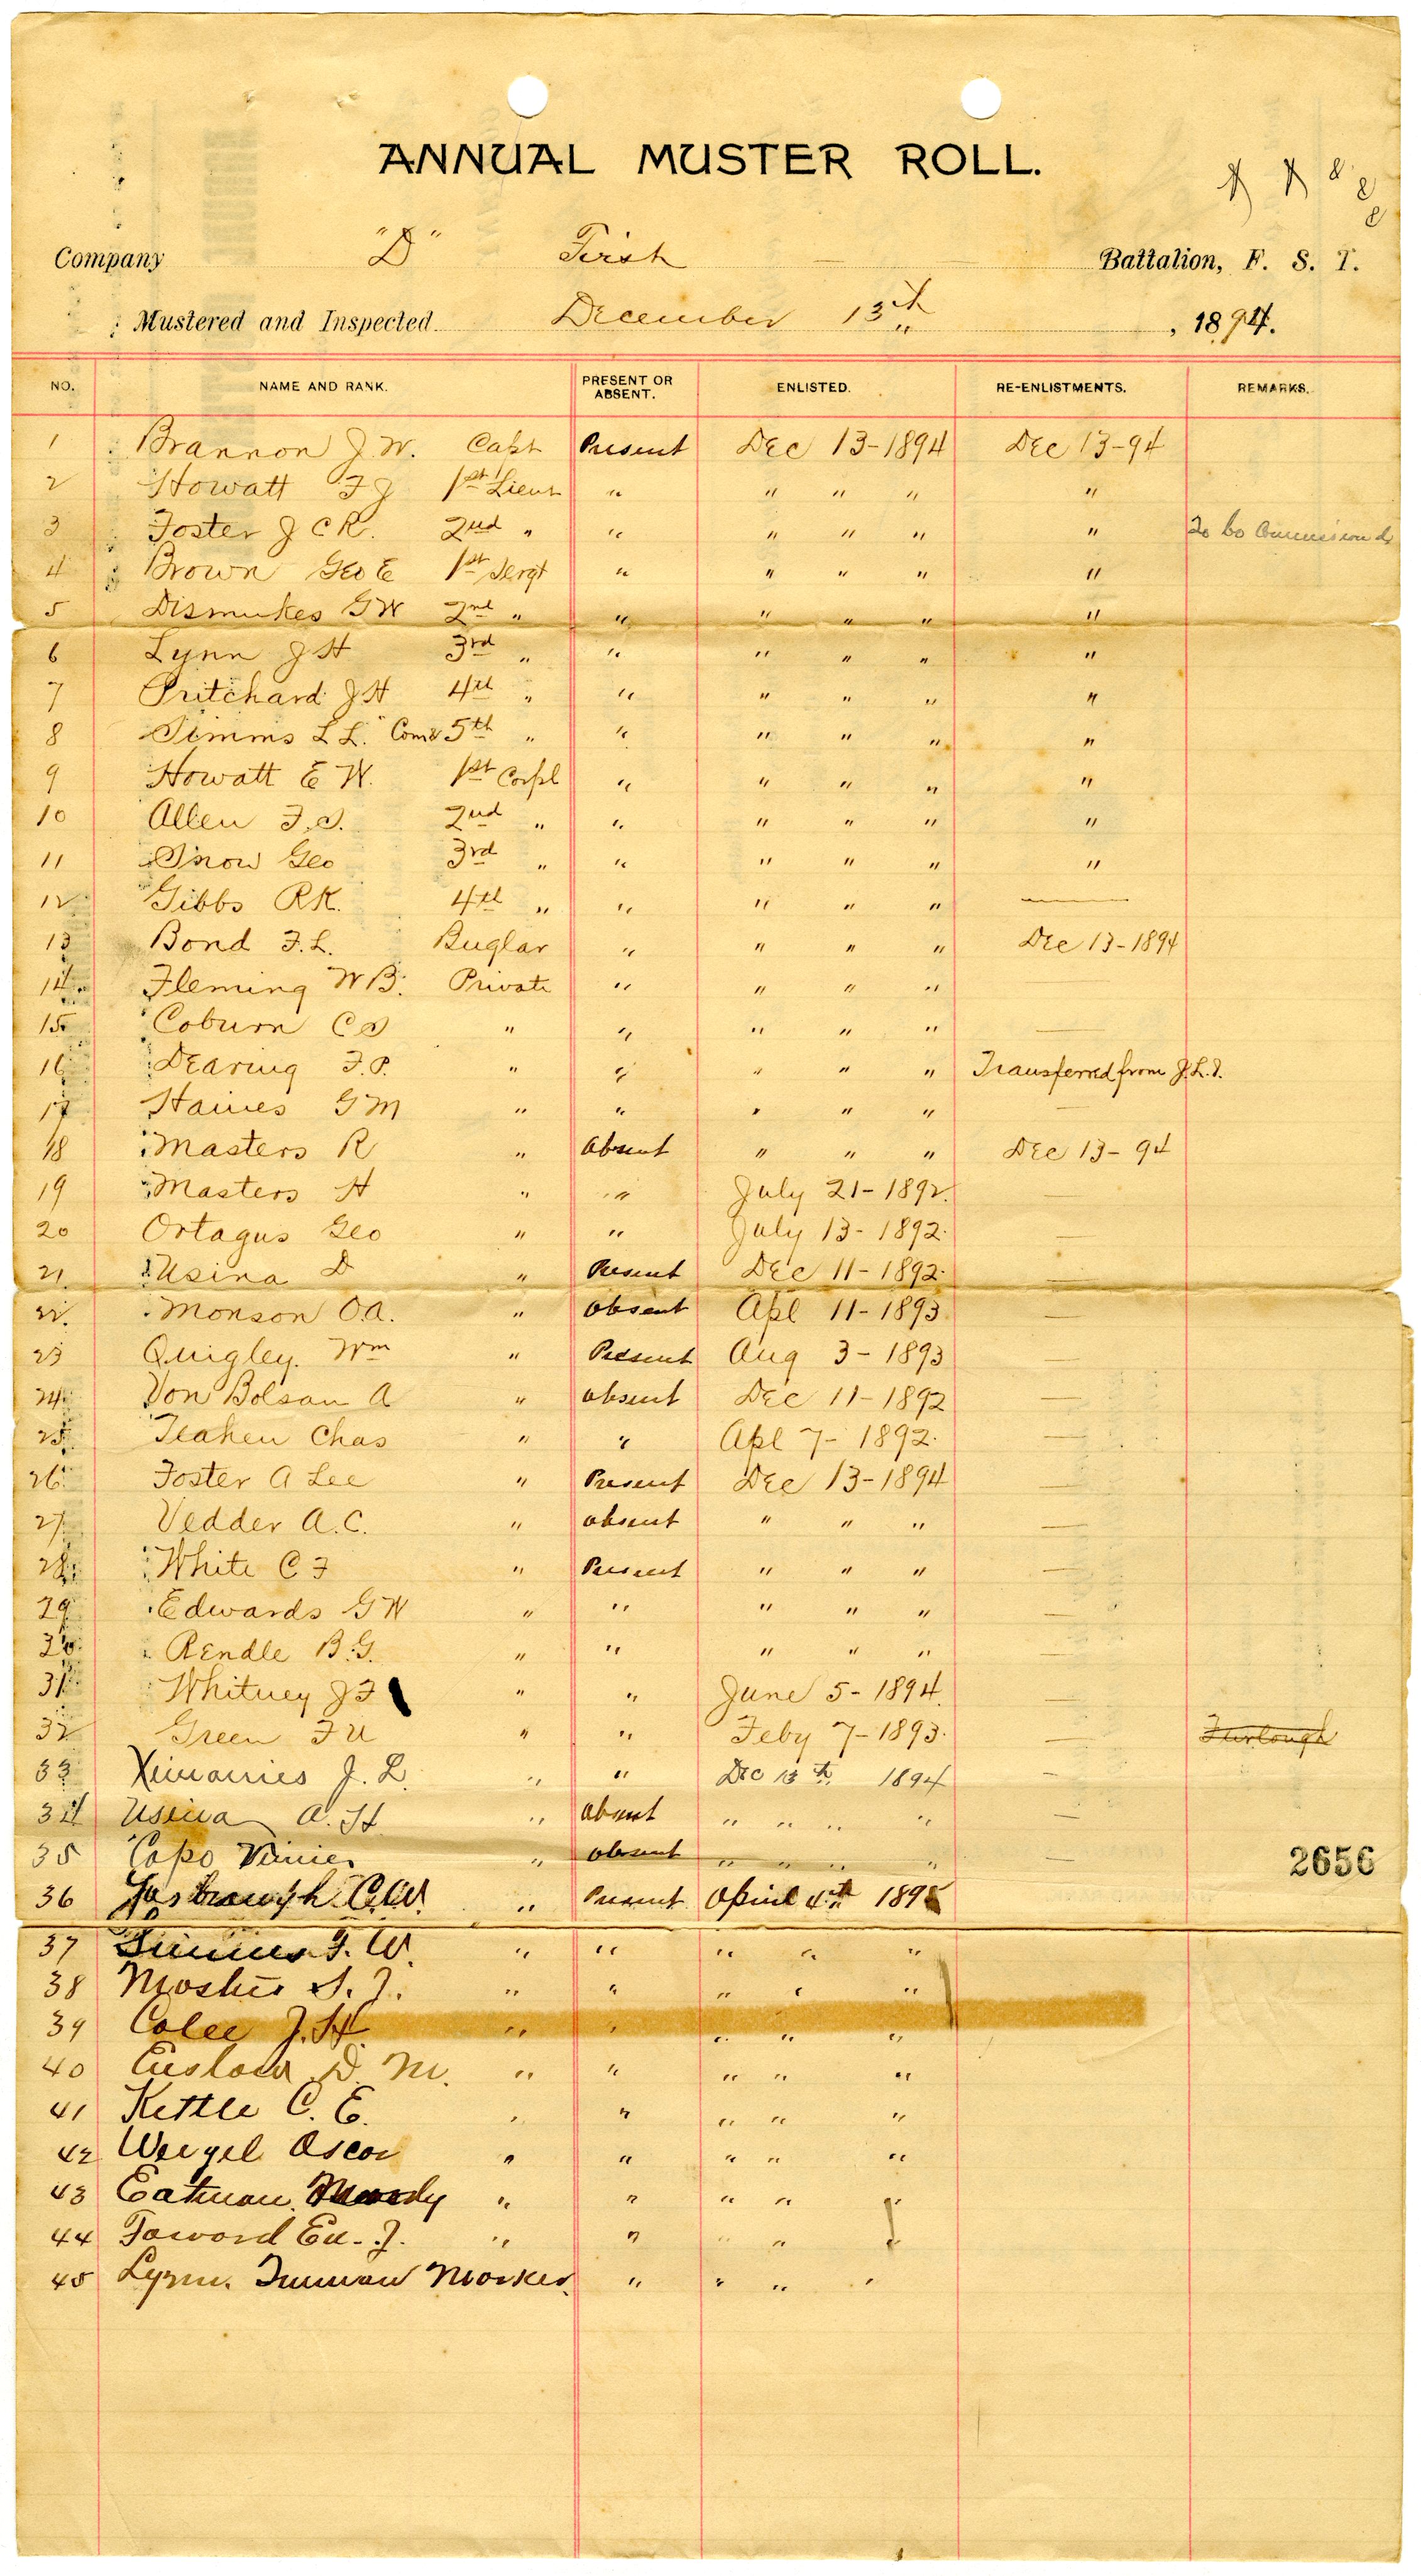 ANNUAL MUSTER ROLL.
Company "D" First Battalion, F. S. T.
Mustered and Inspected December 13th, 1894.
NO. NAME AND RANK. PRESENT OR ABSENT. ENLISTED. RE-ENLISTMENTS. REMARKS.
1 Brannon J. W. Capt Present Dec 13-1894 Dec 13-94
2 Howatt F J 1st Lieut " " " " "
3 Foster J C R. 2nd " " " " " " To be Commissioned
4 Brown Geo E 1st Sergt " " " " "
5 Dismukes G W 2nd " " " " " "
6 Lynn J H 3rd " " " " " "
7 Pritchard J H 4th " " " " " "
8 Simms L L. Comy 5th " " " " " "
9 Howatt E W. 1st Corpl " " " " "
10 Allen F. S. 2nd " " " " " "
11 Snow Geo 3rd " " " " " "
12 Gibbs R K. 4th " " " " " —
13 Bond F. L. Buglar " " " " Dec 13-1894
14 Fleming W B. Private " " " " —
15 Coburn C S " " " " " —
16 Dearing F. P. " " " " " Transferred from J. L. I.
17 Haines G M " " " " " —
18 Masters R " Absent " " " Dec 13-94
19 Masters H " " July 21-1892. —
20 Ortagus Geo " " July 13-1892. —
21 Usina D " Present Dec 11-1892. —
22. Monson O. A. " Absent Apl 11-1893 —
23 Quigley. Wm " Present Aug 3-1893 —
24 Von Bolson A " absent Dec 11-1892 —
25 Teahen Chas " " Apl 7-1892. —
26 Foster A Lee " Present Dec 13-1894 —
27 Vedder A. C. " absent " " " —
28 White C F " Present " " " —
29 Edwards G W " " " " " —
30 Rendle B. G. " " " " " —
31 Whitney J F " " June 5-1894. —
32 Green F U " " Feby 7-1893. — Furlough
33 Ximanies J. L. " " Dec 13th 1894 —
34 Usina A. H. " Absent " " " " —
35 Capo " absent " " " " —
2656
36 C. W. " Present April 4th 1895
37 F. W. " " " " "
38 S. J. " " " " "
39 Colee J. H. " " " " "
40 D. M. " " " " "
41 Kettle C. E. " " " " "
42 Weigel Oscar " " " " "
43 Eatman. " " " "
44 " " " "
45 Lynn. " " " "